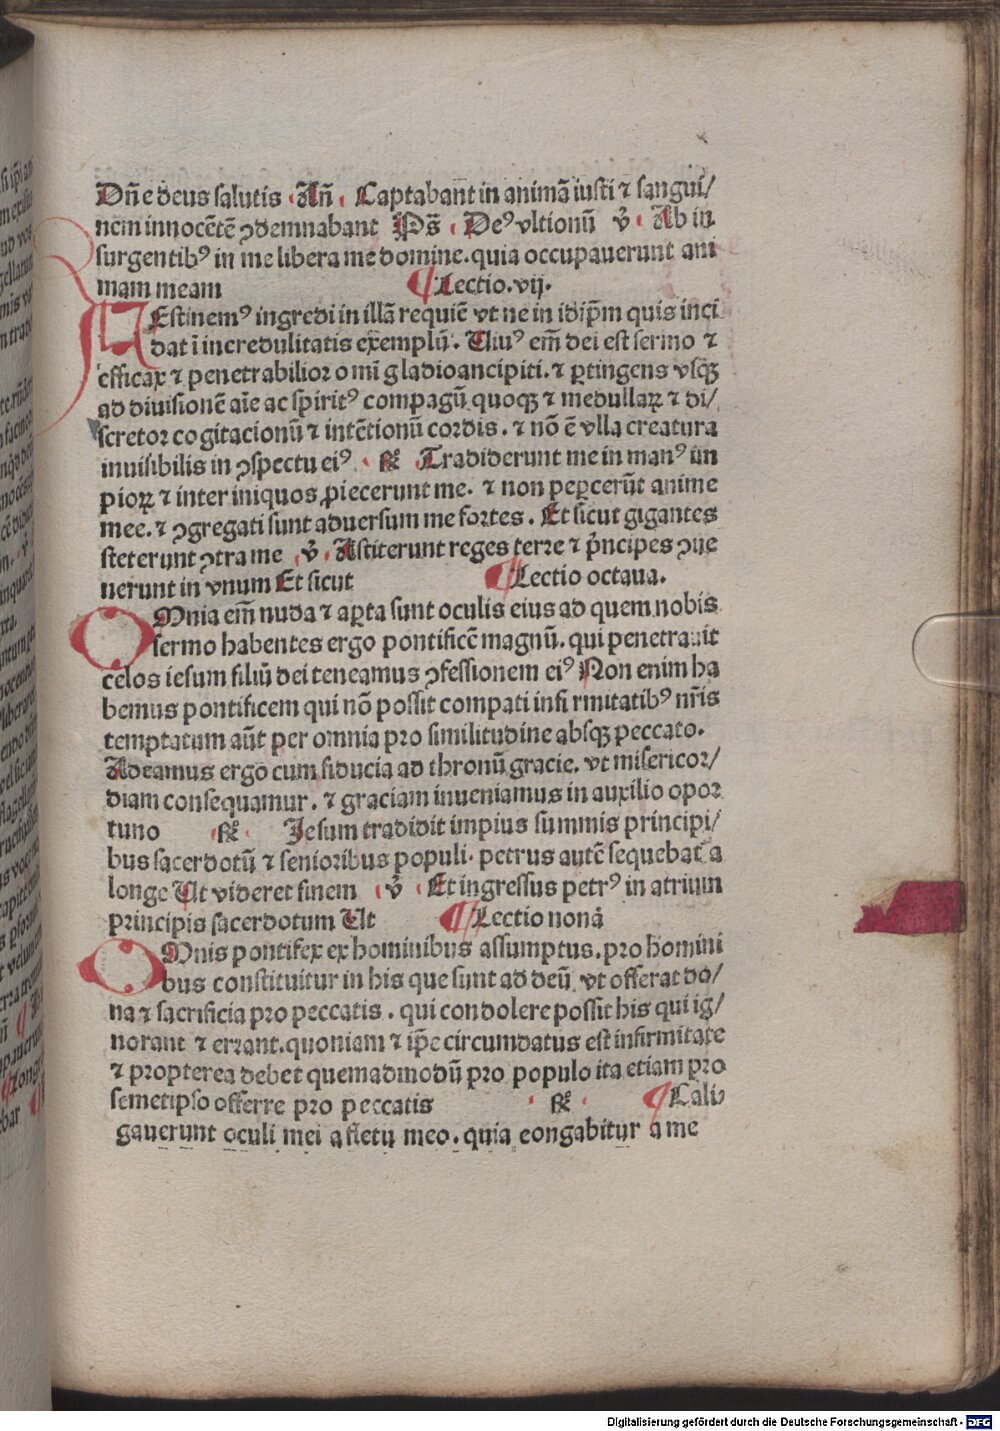 Dñe deus salutis Añ Captabant in animã iusti ⁊ sangui/
nem innocẽtẽ ꝯdemnabant Ps̃ De⁹ vltionũ ℣ Ab in
surgentib⁹ in me libera me domine. quia occupauerunt ani
mam meam Lectio .vij.
FEstinem⁹ ingredi in illã requiẽ vt ne in idip̃m quis inci
dat ĩ incredulitatis exemplũ. Uiu⁹ em̃ dei est sermo ⁊
efficax ⁊ penetrabilior omĩ gladio ancipiti. ⁊ ꝑtingens vsqꝫ
ad diuisionẽ aĩe ac spirit⁹ compagũ quoqꝫ ⁊ medullaꝝ ⁊ di/
scretor cogitacionũ ⁊ intẽtionũ cordis. ⁊ nõ ẽ vlla creatura
inuisibilis in ꝯspectu ei⁹ ℟ Tradiderunt me in man⁹ im
pioꝝ ⁊ inter iniquos ꝓiecerunt me. ⁊ non peꝑcerũt anime
mee. ⁊ ꝯgregati sunt aduersum me fortes. Et sicut gigantes
steterunt ꝯtra me ℣ Astiterunt reges terre ⁊ p̃ncipes ꝯue
nerunt in vnum Et sicut Lectio octaua.
OMnia em̃ nuda ⁊ aꝑta sunt oculis eius ad quem nobis
sermo habentes ergo pontificẽ magnũ. qui penetrauit
celos iesum filiũ dei teneamus ꝯfessionem ei⁹ Non enim ha
bemus pontificem qui nõ possit compati infirmitatib⁹ nr̃is
temptatum aũt per omnia pro similitudine absqꝫ peccato.
Adeamus ergo cum fiducia ad thronũ gracie. vt misericor/
diam consequamur. ⁊ graciam inueniamus in auxilio opor
tuno ℟ Jesum tradidit impius summis principi/
bus sacerdotũ ⁊ senioribus populi. petrus autẽ sequebat̃ a
longe Ut videret finem ℣ Et ingressus petr⁹ in atrium
principis sacerdotum Ut Lectio nona
OMnis pontifex ex hominibus assumptus. pro homini
bus constituitur in his que sunt ad deũ vt offerat do/
na ⁊ sacrificia pro peccatis. qui condolere possit his qui ig/
norant ⁊ errant. quoniam ⁊ ip̃e circumdatus est infirmitate
⁊ propterea debet quemadmodũ pro populo ita etiam pro
semetipso offerre pro peccatis ℟ Cali
gauerunt oculi mei a fletu meo. quia eongabitur a me
Digitalisierung gefördert durch die Deutsche Forschungsgemeinschaft - DFG